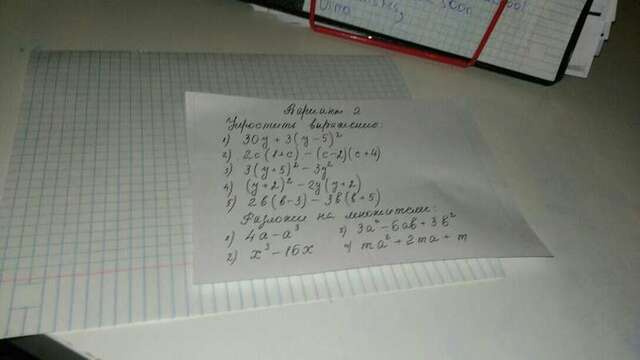 Вариант 2
Упростить выражение:
1) 30y + 3(y-5)²
2) 2c(1+c) - (c-2)(c+4)
3) 3(y+5)² - 3y²
4) (y+2)² - 2y(y+2)
5) 2b(b-3) - 3b(b+5)
Разложи на множители:
1) 4a - a³ 3) 3a² - 6ab + 3b²
2) x³ - 16x 4) ma² + 2ma + m